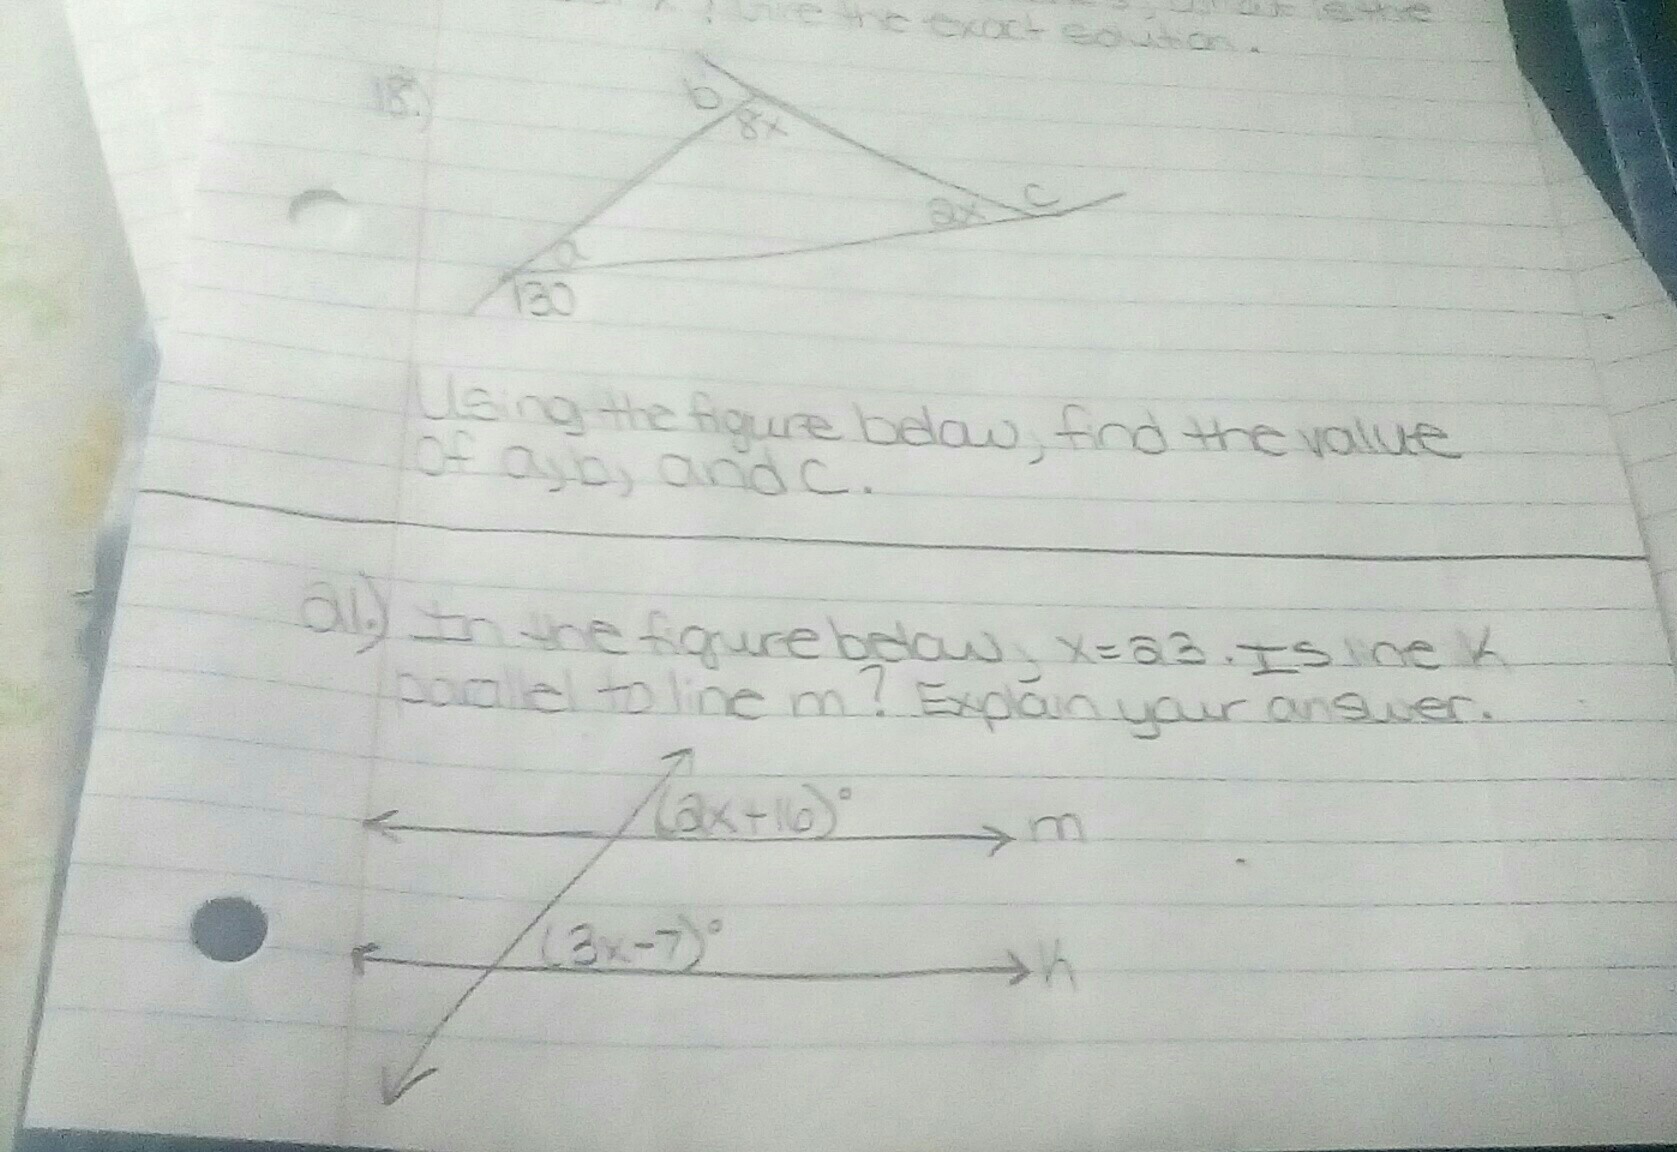 the exact solution.
18.)
b
8x
2x
c
a
130
Using the figure below, find the value
of a, b, and c.
21.) In the figure below, x=23. Is line k
parallel to line m? Explain your answer.
(2x+16)°
m
(3x-7)°
k